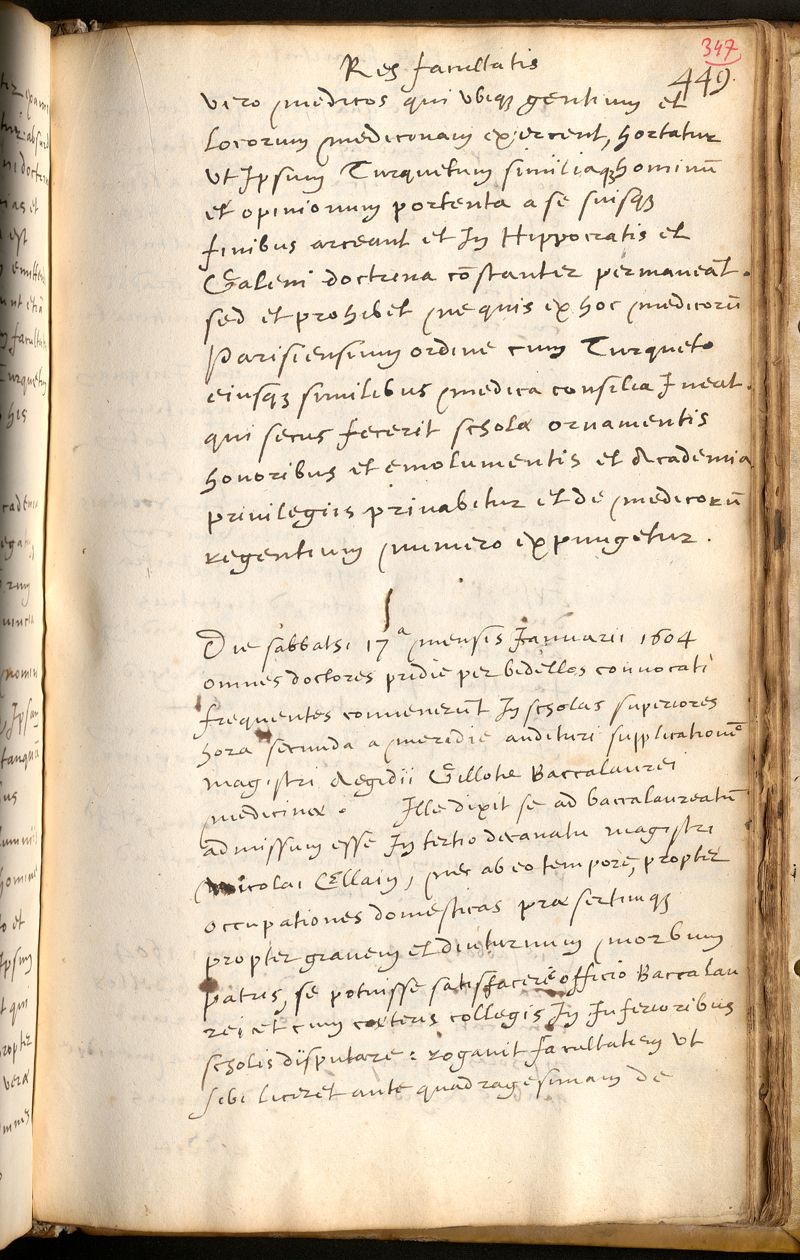 347
Res facultatis
449.
vero medicos qui vbiq̨ gentium et
locorum medicinam exercent, hortatur
vt Ipsum Turquetum similiaq̨ hominū
et opinionum portenta a se suisq̨
finibus arceant et In Hippocratis et
Galeni doctrina cōstanter permaneāt.
sed et prohibet ne quis ex hoc medicorū
Parisiensium ordine cum Turqueto
eiusq̨ similibus medica consilia Ineat.
qui secus fecerit scholæ ornamentis
honoribus et emolumentis et Academiæ
priuilegiis priuabitur et de medicorū
regentium numero expungetur.
Die sabbathi 17ª mensis Januarii 1604
omnes doctores pridie per bedellos conuocati
frequentes conuenerūt In scholas superiores
hora secunda a meridie audituri supplicationē
magistri Ægidii Gillote Baccalaurei
medicinæ. Ille dixit se ad baccalaureatū
admissum esse In tertio decanatu magistri
Nicolai Ellain, nec ab eo tempore, propter
occupationes domesticas præsertimq̨
propter grauem et diuturnum morbum
patris, se potuisse satisfacere officio Baccalau
rei et cum cæteris collegis In Inferioribus
scholis disputare: rogauit facultatem vt
sibi liceret ante quadragesimam de